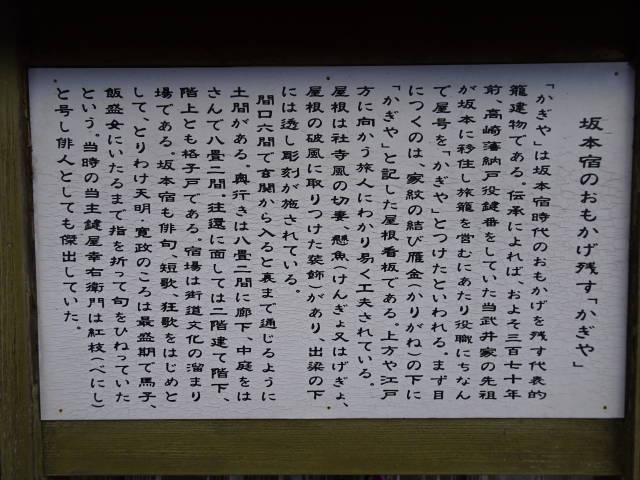 坂本宿のおもかげ残す「かぎや」
「かぎや」は坂本宿時代のおもかげを残す代表的
旅籠建物である。伝承によれば、およそ三百七十年
前、高崎藩納戸役鍵番をしていた当武井家の先祖
が坂本に移住し旅籠を営むにあたり役職にちなん
で屋号を「かぎや」とつけたといわれる。まず目
につくのは、家紋の結び雁金(かりがね)の下に
「かぎや」と記した屋根看板である。上方や江戸
方に向かう旅人にわかり易く工夫されている。
屋根は社寺風の切妻、懸魚(けんぎょ又はげぎょ、
屋根の破風に取りつけた装飾)があり、出梁の下
には透し彫刻が施されている。
間口六間で玄関から入ると裏まで通じるように
土間がある。奥行きは八畳二間に廊下、中庭をは
さんで八畳二間。往還に面しては二階建て階下、
階上とも格子戸である。宿場は街道文化の溜まり
場である。坂本宿も俳句、短歌、狂歌をはじめと
して、とりわけ天明、寛政のころは最盛期で馬子、
飯盛女にいたるまで指を折って句をひねっていた
という。当時の当主鍵屋幸右衛門は紅枝(べにし)
と号し俳人としても傑出していた。